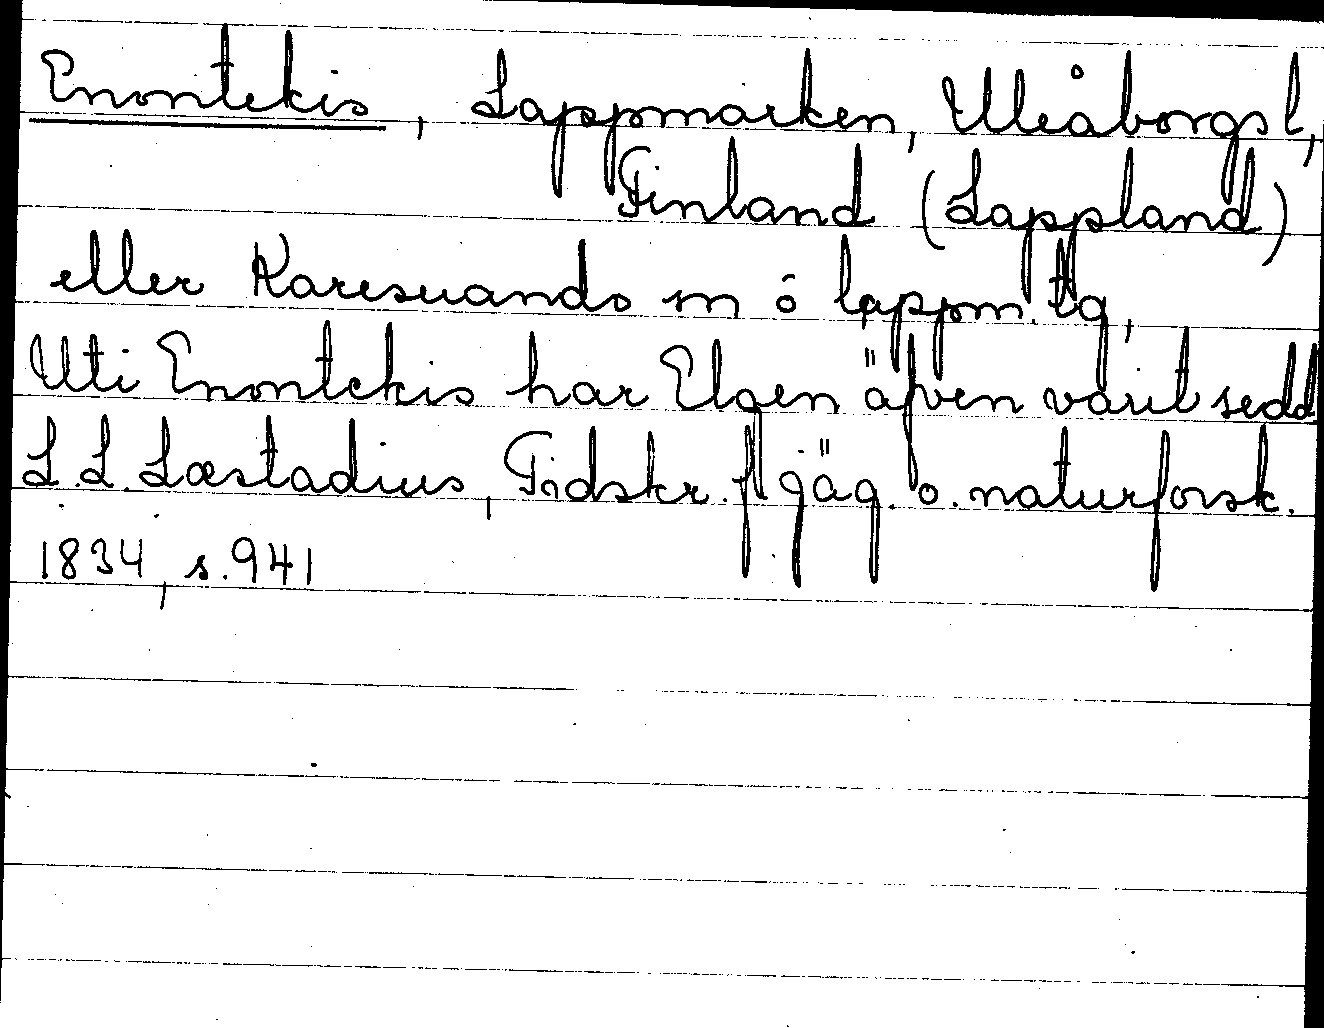 Enontekis, Lappmarken, Uleåborgs l,
Finland (Lappland)
eller Karesuando m ó lappm. tg,
Uti Enontekis har Elgen äfven varit sedd
L.L. Læstadius, Tidskr. f jäg. o. naturforsk.
1834, s. 941